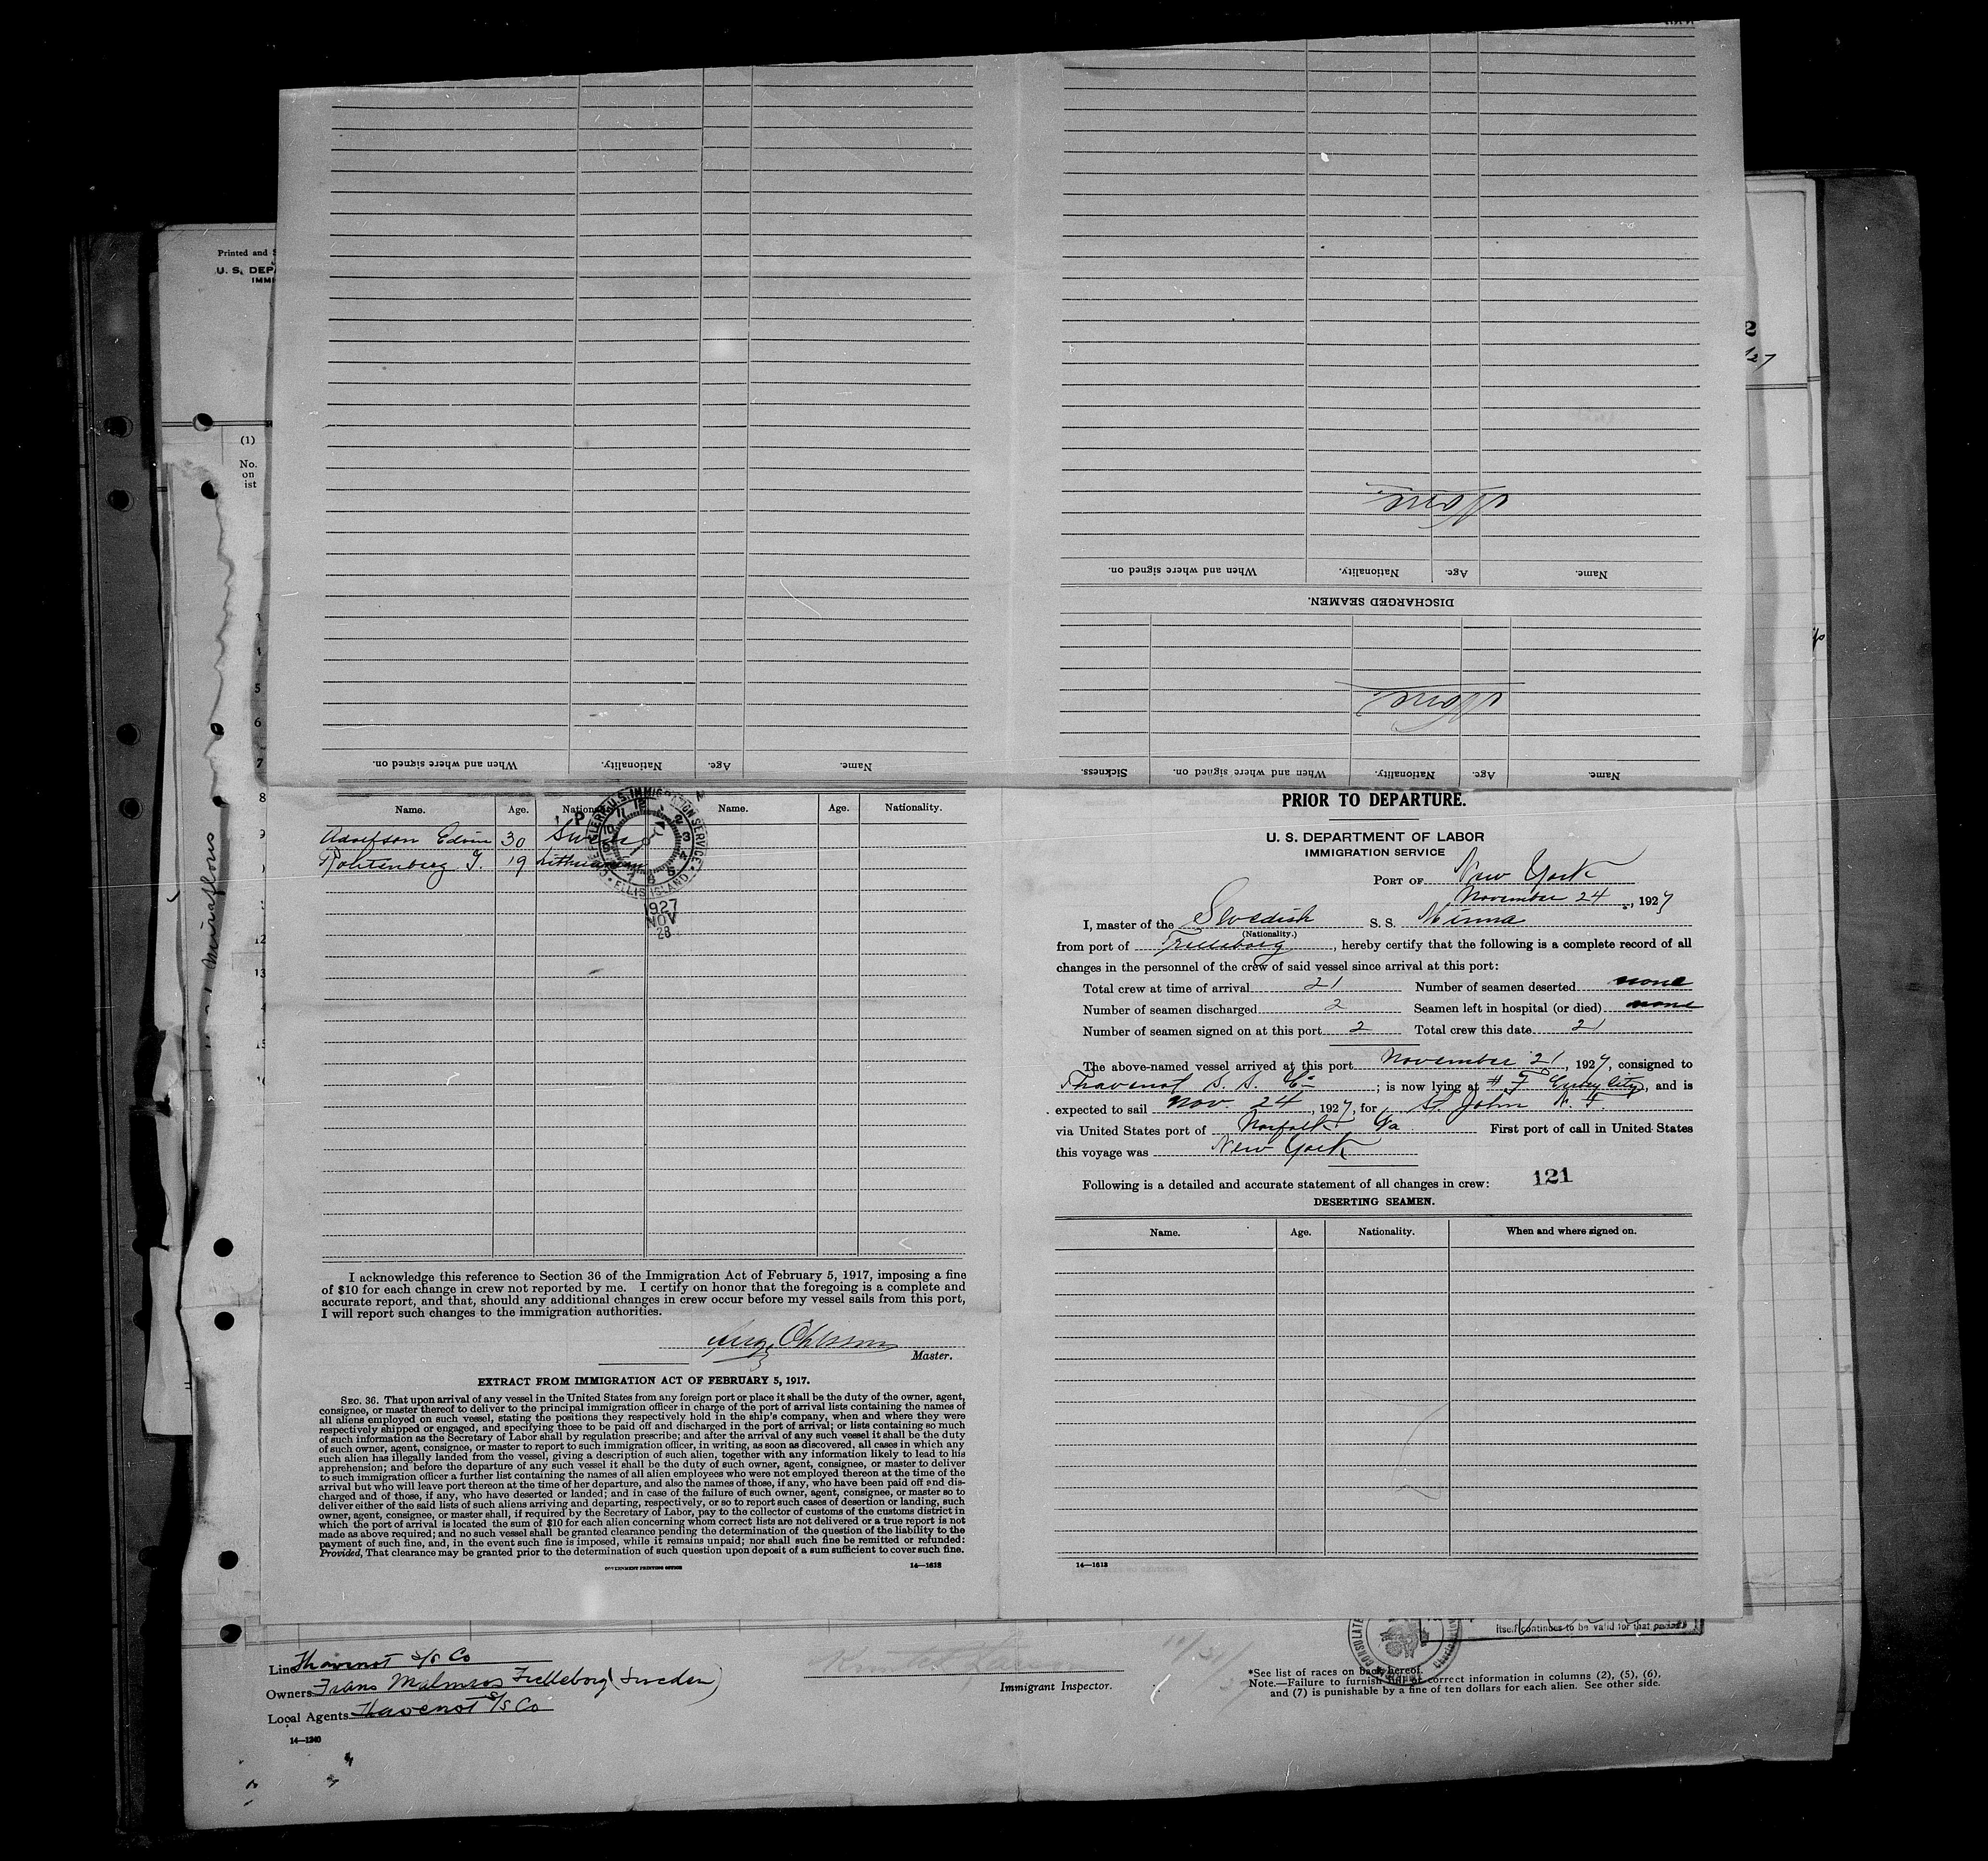 Printed and
U. S. DEP
IMMI
(1)
No.
on
ist
5
6
7
8
9
12
13
Miraflores
2
When and where signed on.
Nationality.
Age.
Name.
None
When and where signed on.
Nationality.
Age.
Name.
DISCHARGED SEAMEN.
None
Sickness.
When and where signed on.
Nationality.
Age.
Name.
Name. Age. Name. Age. Nationality.
Adolfson Edvin 30
19 Lithuanian
CLERK U.S. IMMIGRATION SERVICE
ELLIS ISLAND
1927
NOV
28
I acknowledge this reference to Section 36 of the Immigration Act of February 5, 1917, imposing a fine
of $10 for each change in crew not reported by me. I certify on honor that the foregoing is a complete and
accurate report, and that, should any additional changes in crew occur before my vessel sails from this port,
I will report such changes to the immigration authorities.
Master.
EXTRACT FROM IMMIGRATION ACT OF FEBRUARY 5, 1917.
SEC. 36. That upon arrival of any vessel in the United States from any foreign port or place it shall be the duty of the owner, agent,
consignee, or master thereof to deliver to the principal immigration officer in charge of the port of arrival lists containing the names of
all aliens employed on such vessel, stating the positions they respectively hold in the ship's company, when and where they were
respectively shipped or engaged, and specifying those to be paid off and discharged in the port of arrival; or lists containing so much
of such information as the Secretary of Labor shall by regulation prescribe; and after the arrival of any such vessel it shall be the duty
of such owner, agent, consignee, or master to report to such immigration officer, in writing, as soon as discovered, all cases in which any
such alien has illegally landed from the vessel, giving a description of such alien, together with any information likely to lead to his
apprehension; and before the departure of any such vessel it shall be the duty of such owner, agent, consignee, or master to deliver
to such immigration officer a further list containing the names of all alien employees who were not employed thereon at the time of the
arrival but who will leave port thereon at the time of her departure, and also the names of those, if any, who have been paid off and dis-
charged and of those, if any, who have deserted or landed; and in case of the failure of such owner, agent, consignee, or master so to
deliver either of the said lists of such aliens arriving and departing, respectively, or so to report such cases of desertion or landing, such
owner, agent, consignee, or master shall, if required by the Secretary of Labor, pay to the collector of customs of the customs district in
which the port of arrival is located the sum of $10 for each alien concerning whom correct lists are not delivered or a true report is not
made as above required; and no such vessel shall be granted clearance pending the determination of the question of the liability to the
payment of such fine, and, in the event such fine is imposed, while it remains unpaid; nor shall such fine be remitted or refunded:
Provided, That clearance may be granted prior to the determination of such question upon deposit of a sum sufficient to cover such fine.
GOVERNMENT PRINTING OFFICE 14—1612
PRIOR TO DEPARTURE.
U. S. DEPARTMENT OF LABOR
IMMIGRATION SERVICE
PORT OF New York
November 24, 1927
I, master of the Swedish S. S. Minna
(Nationality.)
from port of Trelleborg, hereby certify that the following is a complete record of all
changes in the personnel of the crew of said vessel since arrival at this port:
Total crew at time of arrival 21 Number of seamen deserted none
Number of seamen discharged 2 Seamen left in hospital (or died) none
Number of seamen signed on at this port 2 Total crew this date 21
The above-named vessel arrived at this port November 21, 1927, consigned to
Thavenot S. S. Co; is now lying at # 7 Jersey City, and is
expected to sail Nov. 24, 1927, for St. John N. F.
via United States port of Norfolk Va First port of call in United States
this voyage was New York
Following is a detailed and accurate statement of all changes in crew: 121
DESERTING SEAMEN.
Name. Age. Nationality. When and where signed on.
14—1612
Line Thavenot S/S Co
Owners Frans Malmros Trelleborg (Sweden)
Local Agents Thavenot S/S Co
14—1240
Immigrant Inspector.
CONSULATE
itself continues to be valid for that period
*See list of races on back hereof.
Note.—Failure to furnish full or correct information in columns (2), (5), (6),
and (7) is punishable by a fine of ten dollars for each alien. See other side.